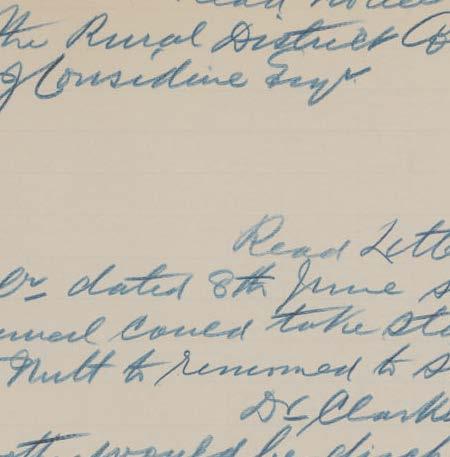 Read
the Rural District Co
J Considine Esqr
Read Lette
Dr dated 8th June s
uncil could take ste
Nutt to removed to s
Dr Clarke
would be disch